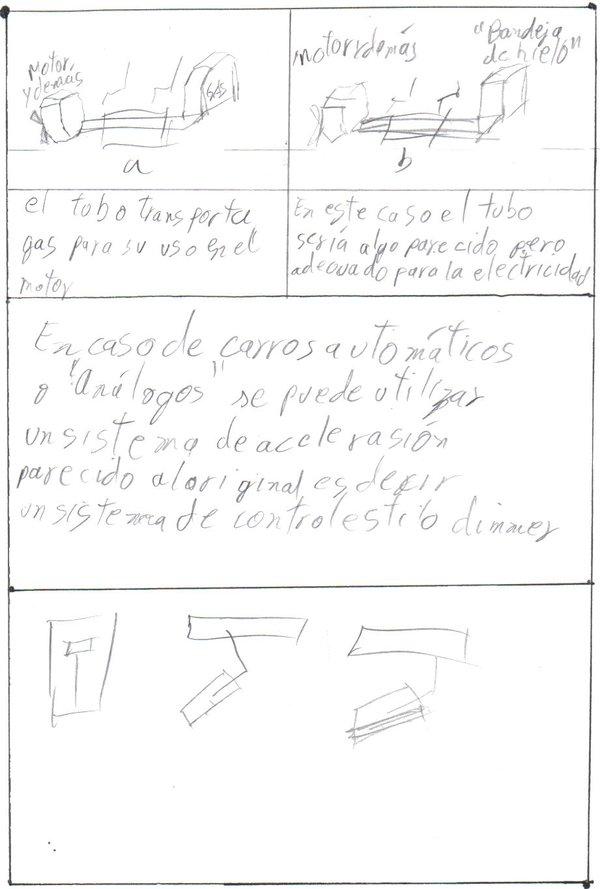 Motor,
y demás
gas
a
motor y demás
"Bandeja
de hielo"
b
el tubo transporta
gas para su uso en el
motor
En este caso el tubo
sería algo parecido pero
adecuado para la electricidad
En caso de carros automáticos
o "Análogos" se puede utilizar
un sistema de accelerasión
parecido al original es decir
un sistema de control estilo dimmer